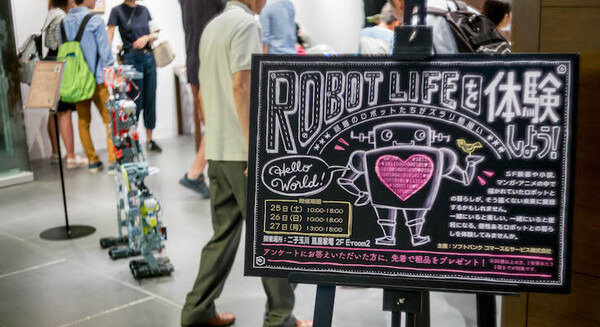 ROBOT LIFEを体験しよう!
話題のロボットたちがズラリ勢揃い
Hello World!
開催期間
25日(土) 10:00-18:00
26日(日) 10:00-18:00
27日(月) 10:00-13:00
開催場所:二子玉川 蔦屋家電 2F E-room2
SF映画や小説、
マンガ・アニメの中で
描かれていたロボットと
の暮らしが、そう遠くない未来に実現
するかもしれません。
一緒にいると楽しい、一緒にいると便
利になる、個性あるロボットとの暮ら
しを体験してみませんか。
主催:ソフトバンク コマース&サービス株式会社
アンケートにお答えいただいた方に、先着で粗品をプレゼント!